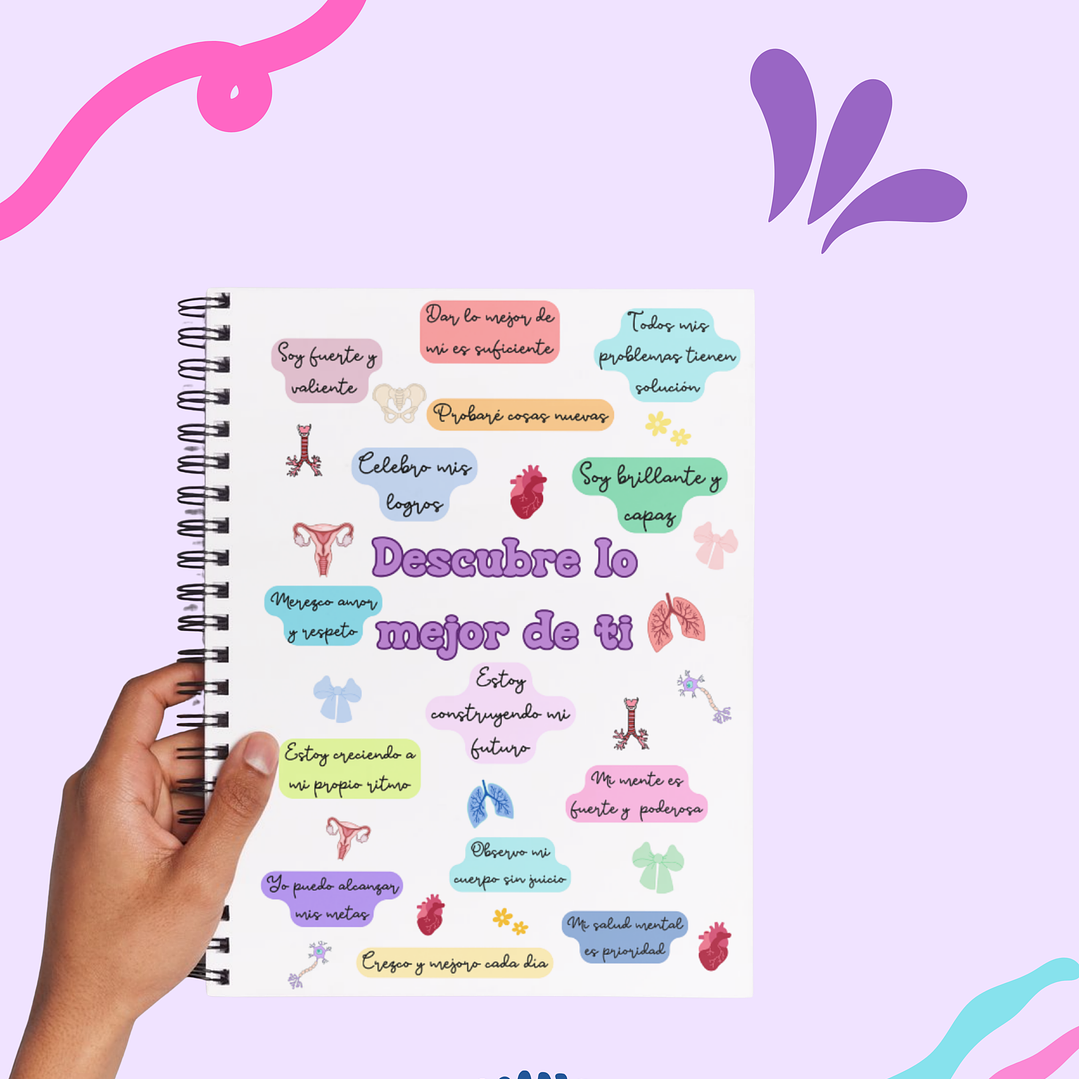 Dar lo mejor de
mi es suficiente
Todos mis
problemas tienen
solución
Soy fuerte y
valiente
Probaré cosas nuevas
Celebro mis
logros
Soy brillante y
capaz
Descubre lo
mejor de ti
Merezco amor
y respeto
Estoy
construyendo mi
futuro
Estoy creciendo a
mi propio ritmo
Mi mente es
fuerte y poderosa
Observo mi
cuerpo sin juicio
Yo puedo alcanzar
mis metas
Mi salud mental
es prioridad
Crezco y mejoro cada dia